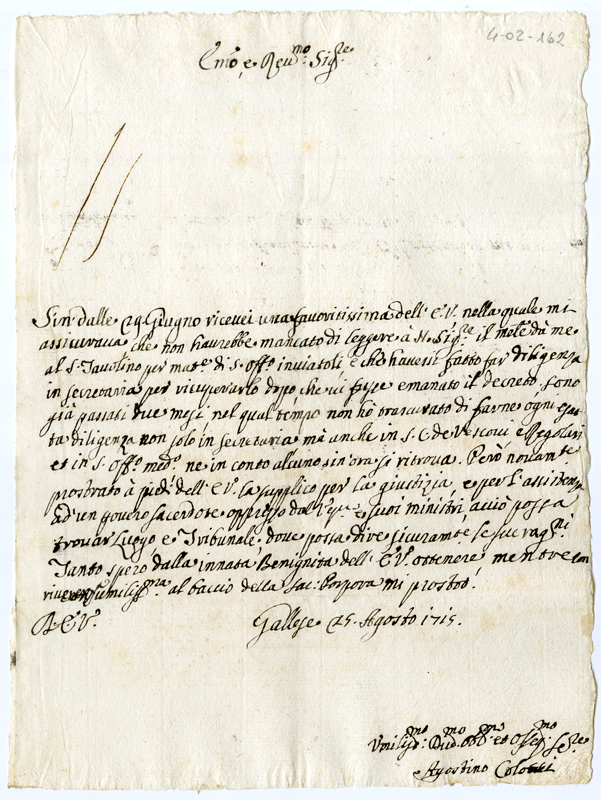 4-02-162
Emo, e Reumo: Sigre:
Sin dalle 29. Giugno ricevei una favoritissima dell' E.V. nella quale mi
assicurava che non haurebbe mancato di leggere à N. Sigre il
al S. Tavolino per matr.a di S. Offo inviatoli, e ch'è haverei fatto far diligenza
in secretaria per ricuperarlo dopo che ci fosse emanato il decreto. sono
già passati due mesi nel qual tempo non hò trascurato di farne ogni esat-
ta diligenza non solo in secretaria mà anche in S. C. de Vescovi e Regolari
et in S. Offo medo. ne in conto alcuno sin'ora si ritrova. Però novamte
prostrato à piedi dell' E.V. la supplico per la giustizia, e per l'assistenza
ad' un povero sacerdote oppresso dal e suoi ministri, acciò possa
trovar luogo e Tribunale, dove possa dire sicuramte le sue ragni:
Tanto spero dalla innata Benignità dell' E.V. ottenere; mentre con
riverenza umilissma al baccio della Sac: Porpora mi prostro.
D. E. V.
Gallese 25. Agosto 1715.
Umilismo: Divmo obbmo et Ossegmo Sre
Agostino Colotti